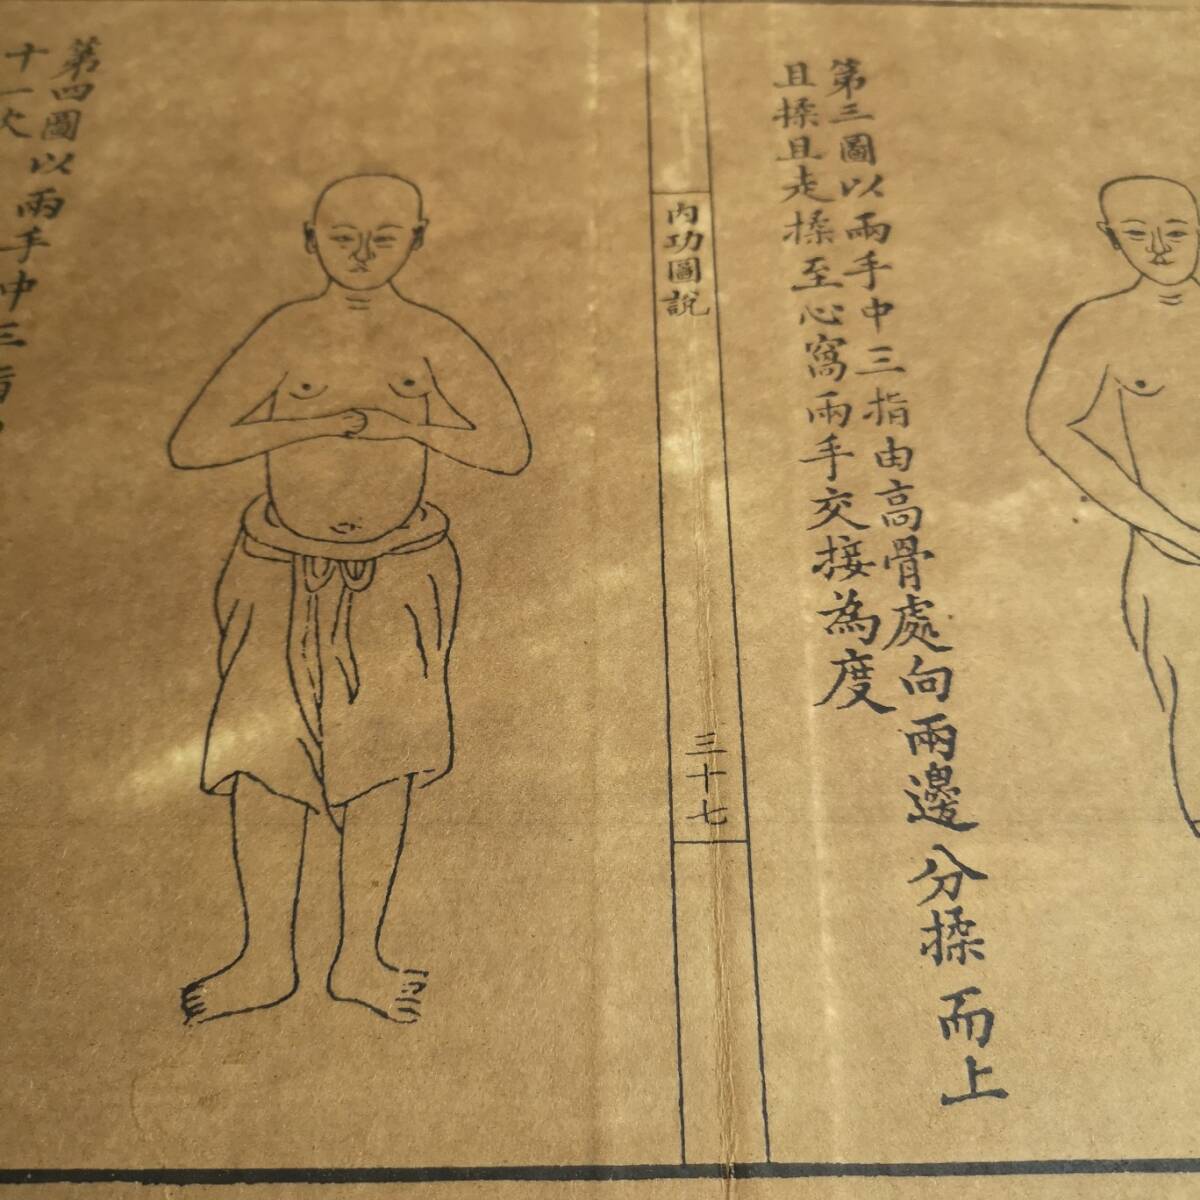 第三圖以兩手中三指由高骨處向兩邊分揉而上
且揉且走揉至心窩兩手交接為度
內功圖說
三十七
第四圖以兩手中三指
十一次